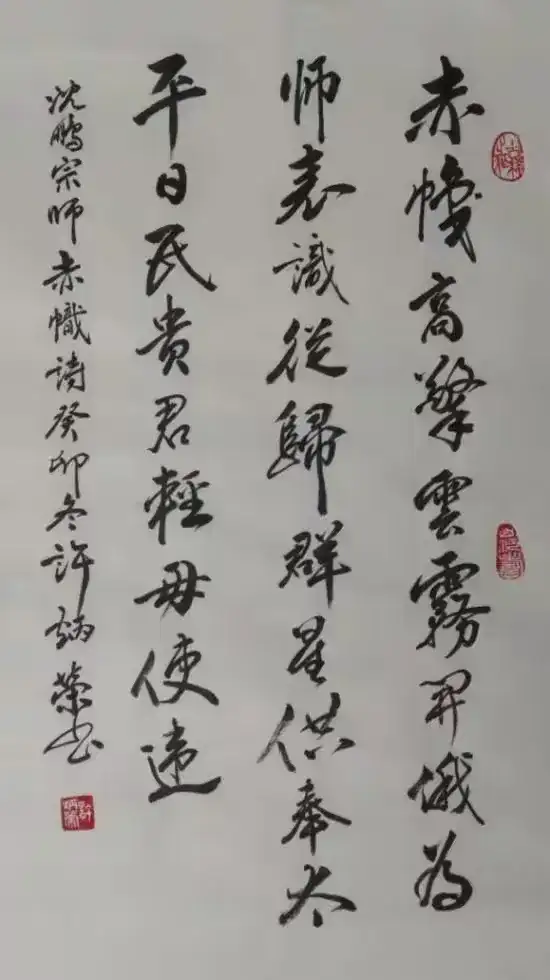 赤幟高擎雲霧開俄為
師表識從歸群星供奉太
平日民貴君輕毋使違
沈鵬宗師赤幟詩癸卯冬許炳榮书
許炳榮